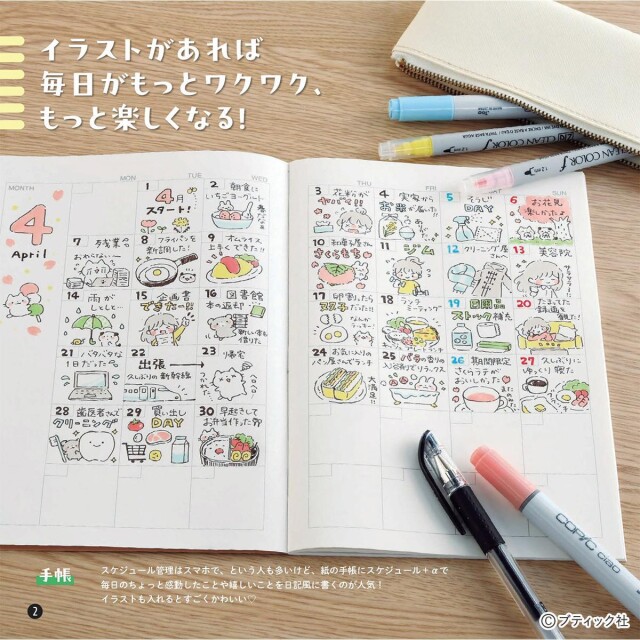 イラストがあれば
毎日がもっとワクワク、
もっと楽しくなる！
MONTH
MON
TUE
WED
THU
FRI
SUN
4
April
1
4月
スタート！
2
朝食に
いちごヨーグルト
3
花粉が
ヤバイ!!
4
実家から
お米が届いた!!
5
そうじ
DAY
6
お花見
楽しかった♪
7
残業
おわらない〜
8
フライパンを
新調した！
9
オムライス
上手くできた!!
10
和菓子屋さん
さくらもち
11
ジム
12
クリーニング屋
さんへ
13
美容院
14
雨が
しとしと
15
企画書
できたー!!
16
図書館
17
卵割ったら
フタゴだった!!
ラッキー
18
ランチ
ミーティング
19
日用品
ストック補充
20
たまってた
録画を
観た！
21
バタバタな
1日だった
22
出張→
久しぶりの新幹線
23
帰宅
24
お気に入りの
パン屋さんでランチ
大満足!!
25
バラの香りの
入浴剤でリラックス
26
期間限定
さくらラテが
おいしかった
27
久しぶりに
ゆっくり寝た
28
歯医者さんで
クリーニング
29
買い出し
DAY
30
早起きして
お弁当作った
CLEAN COLOR f
CLEAN COLOR f
COPIC ciao
手帳
スケジュール管理はスマホで、という人も多いけど、紙の手帳にスケジュール＋αで
毎日のちょっと感動したことや嬉しいことを日記風に書くのが人気！
イラストも入れるとすごくかわいい♡
2
©ブティック社